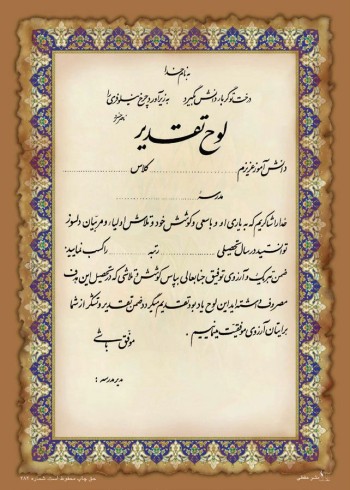 به نام خدا
درخت تو گر بار دانش بگیرد به زیر آوری چرخ نیلوفری را
ناصرخسرو
لوح تقدیر
دانش آموز عزیزم ........................ کلاس ........................
مدرسه ........................
خدا را شاکریم که به یاری او و با سعی و کوشش خود و تلاش اولیاء و مربیان دلسوز
توانستید در سال تحصیلی ............ رتبه ............ را کسب نمایید.
ضمن تبریک و آرزوی توفیق جنابعالی بپاس کوشش و تلاشی که در تحصیل این هدف
مصروف داشته‌اید این لوح یادبود تقدیم میگردد و ضمن تقدیر و تشکر از شما
برایتان آرزوی موفقیت مینماییم .
موفق باشی
مدیر مدرسه :
حق چاپ محفوظ است شماره ۲۸۶